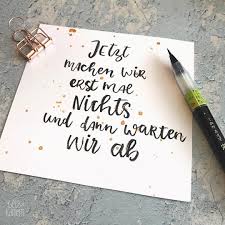 Jetzt
machen wir
erst mal
Nichts
und dann warten
wir ab